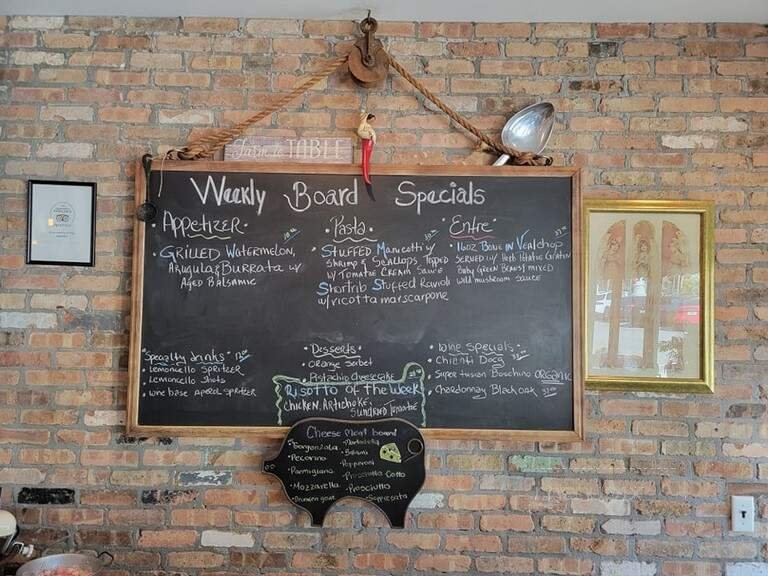 Farm to TABLE
Weekly Board Specials
Appetizer
• GRILLED Watermelon,
Arugula & Burrata w/
Aged Balsamic
Pasta
• STUFFED Manicotti w/
Shrimp & Scallops Topped
w/ Tomatoe Cream Sauce
Shortrib Stuffed Ravioli
w/ ricotta marscarpone
Entre
• 16oz Bone IN Veal chop
Served w/ Herb Potatoe Gratin
Baby Green Beans/ mixed
wild mushroom sauce
Specialty drinks
• Lemoncello Spritzer
• Lemoncello Shots
• wine base Aperol Spritzer
Desserts
• Orange Sorbet
• Pistachio Cheesecake
Risotto of the Week
Chicken, Artichoke,
Sundried Tomatoe
wine specials
• Chienti Docg
• Super tuscan Boschino ORGANIC
• Chardonnay Black oak
Cheese Meat board
• Gorgonzola
• Pecorino
• Parmigiano
• Mozzarella
• Drunken goat
• Mortadella
• Salami
• Pepperoni
• Prosciutto Cotto
• Prosciutto
• Soppresata